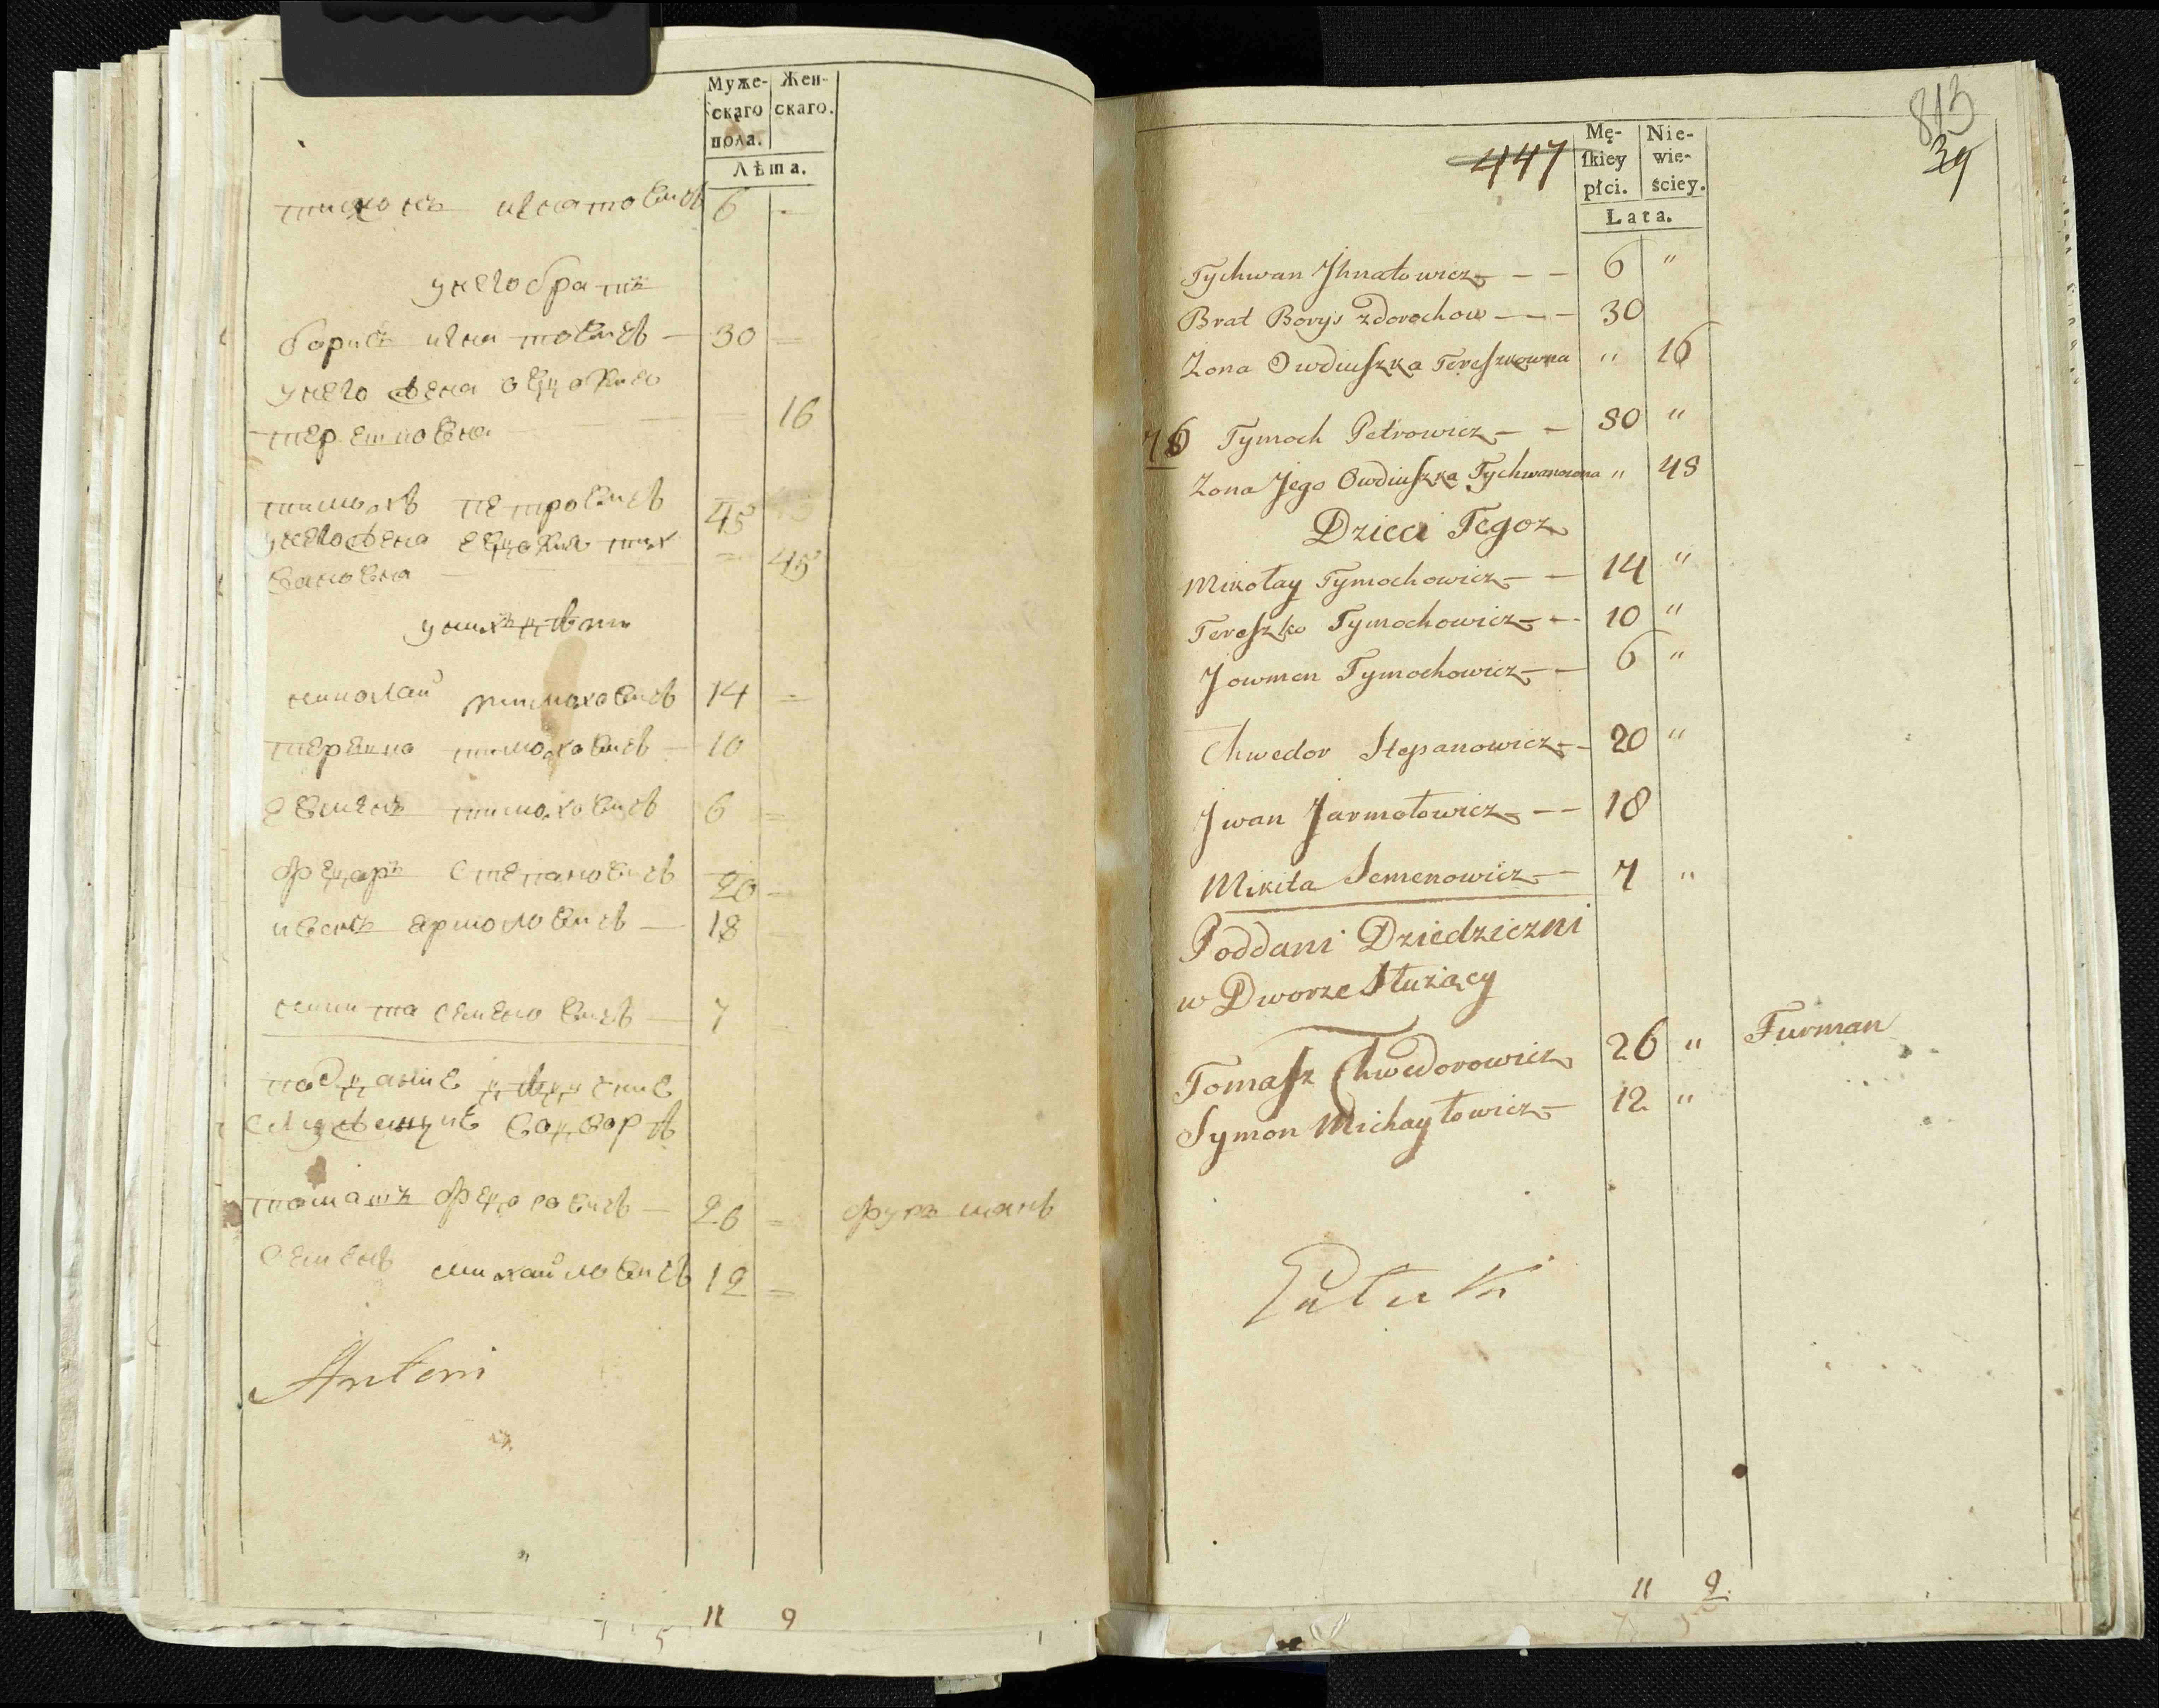 Муже-
скаго
пола.
Жен-
скаго.
Лѣта.
тихонъ игнатовичъ 6 -
у него братъ
борисъ игнатовичъ — 30 —
у него жена овдотия
терешковна — — 16
тимохъ петровичъ 45
у него жена евдокия тих
вановна — 45
у них дѣти
николай тимоховичъ 14 —
терешко тимоховичъ — 10
евменъ тимоховичъ 6 =
федоръ степановичъ 20 —
иванъ ермоловичъ — 18
микита семеновичъ — 7
подданые дѣдические
служащие во дворѣ
томашъ федоровичъ — 26 = фурманъ
семенъ михайловичъ 12 =
Antoni
11 9
813
39
447
Mę-
skiey
płci.
Nie-
wie-
ściey.
Łata.
Tychwan Jhnatowicz - - 6 "
Brat Borys zdorochow - - - 30
Żona Owdiuszka Tereszkowna " 16
76 Tymoch Petrowicz - - 80 "
Żona Jego Owdiuszka Tychwanowna " 48
Dzieci Tegoż
Mikołay Tymochowicz - - 14 "
Tereszko Tymochowicz - - 10 "
Jowmen Tymochowicz - - 6 "
Chwedor Stepanowicz - - 20 "
Jwan Jarmołowicz - - 18
Mikita Semenowicz - - 7 "
Poddani Dziedziczni
w Dworze Służący
Tomasz Chwedorowicz 26 " Furman
Symon Michayłowicz - 12 "
11 9.